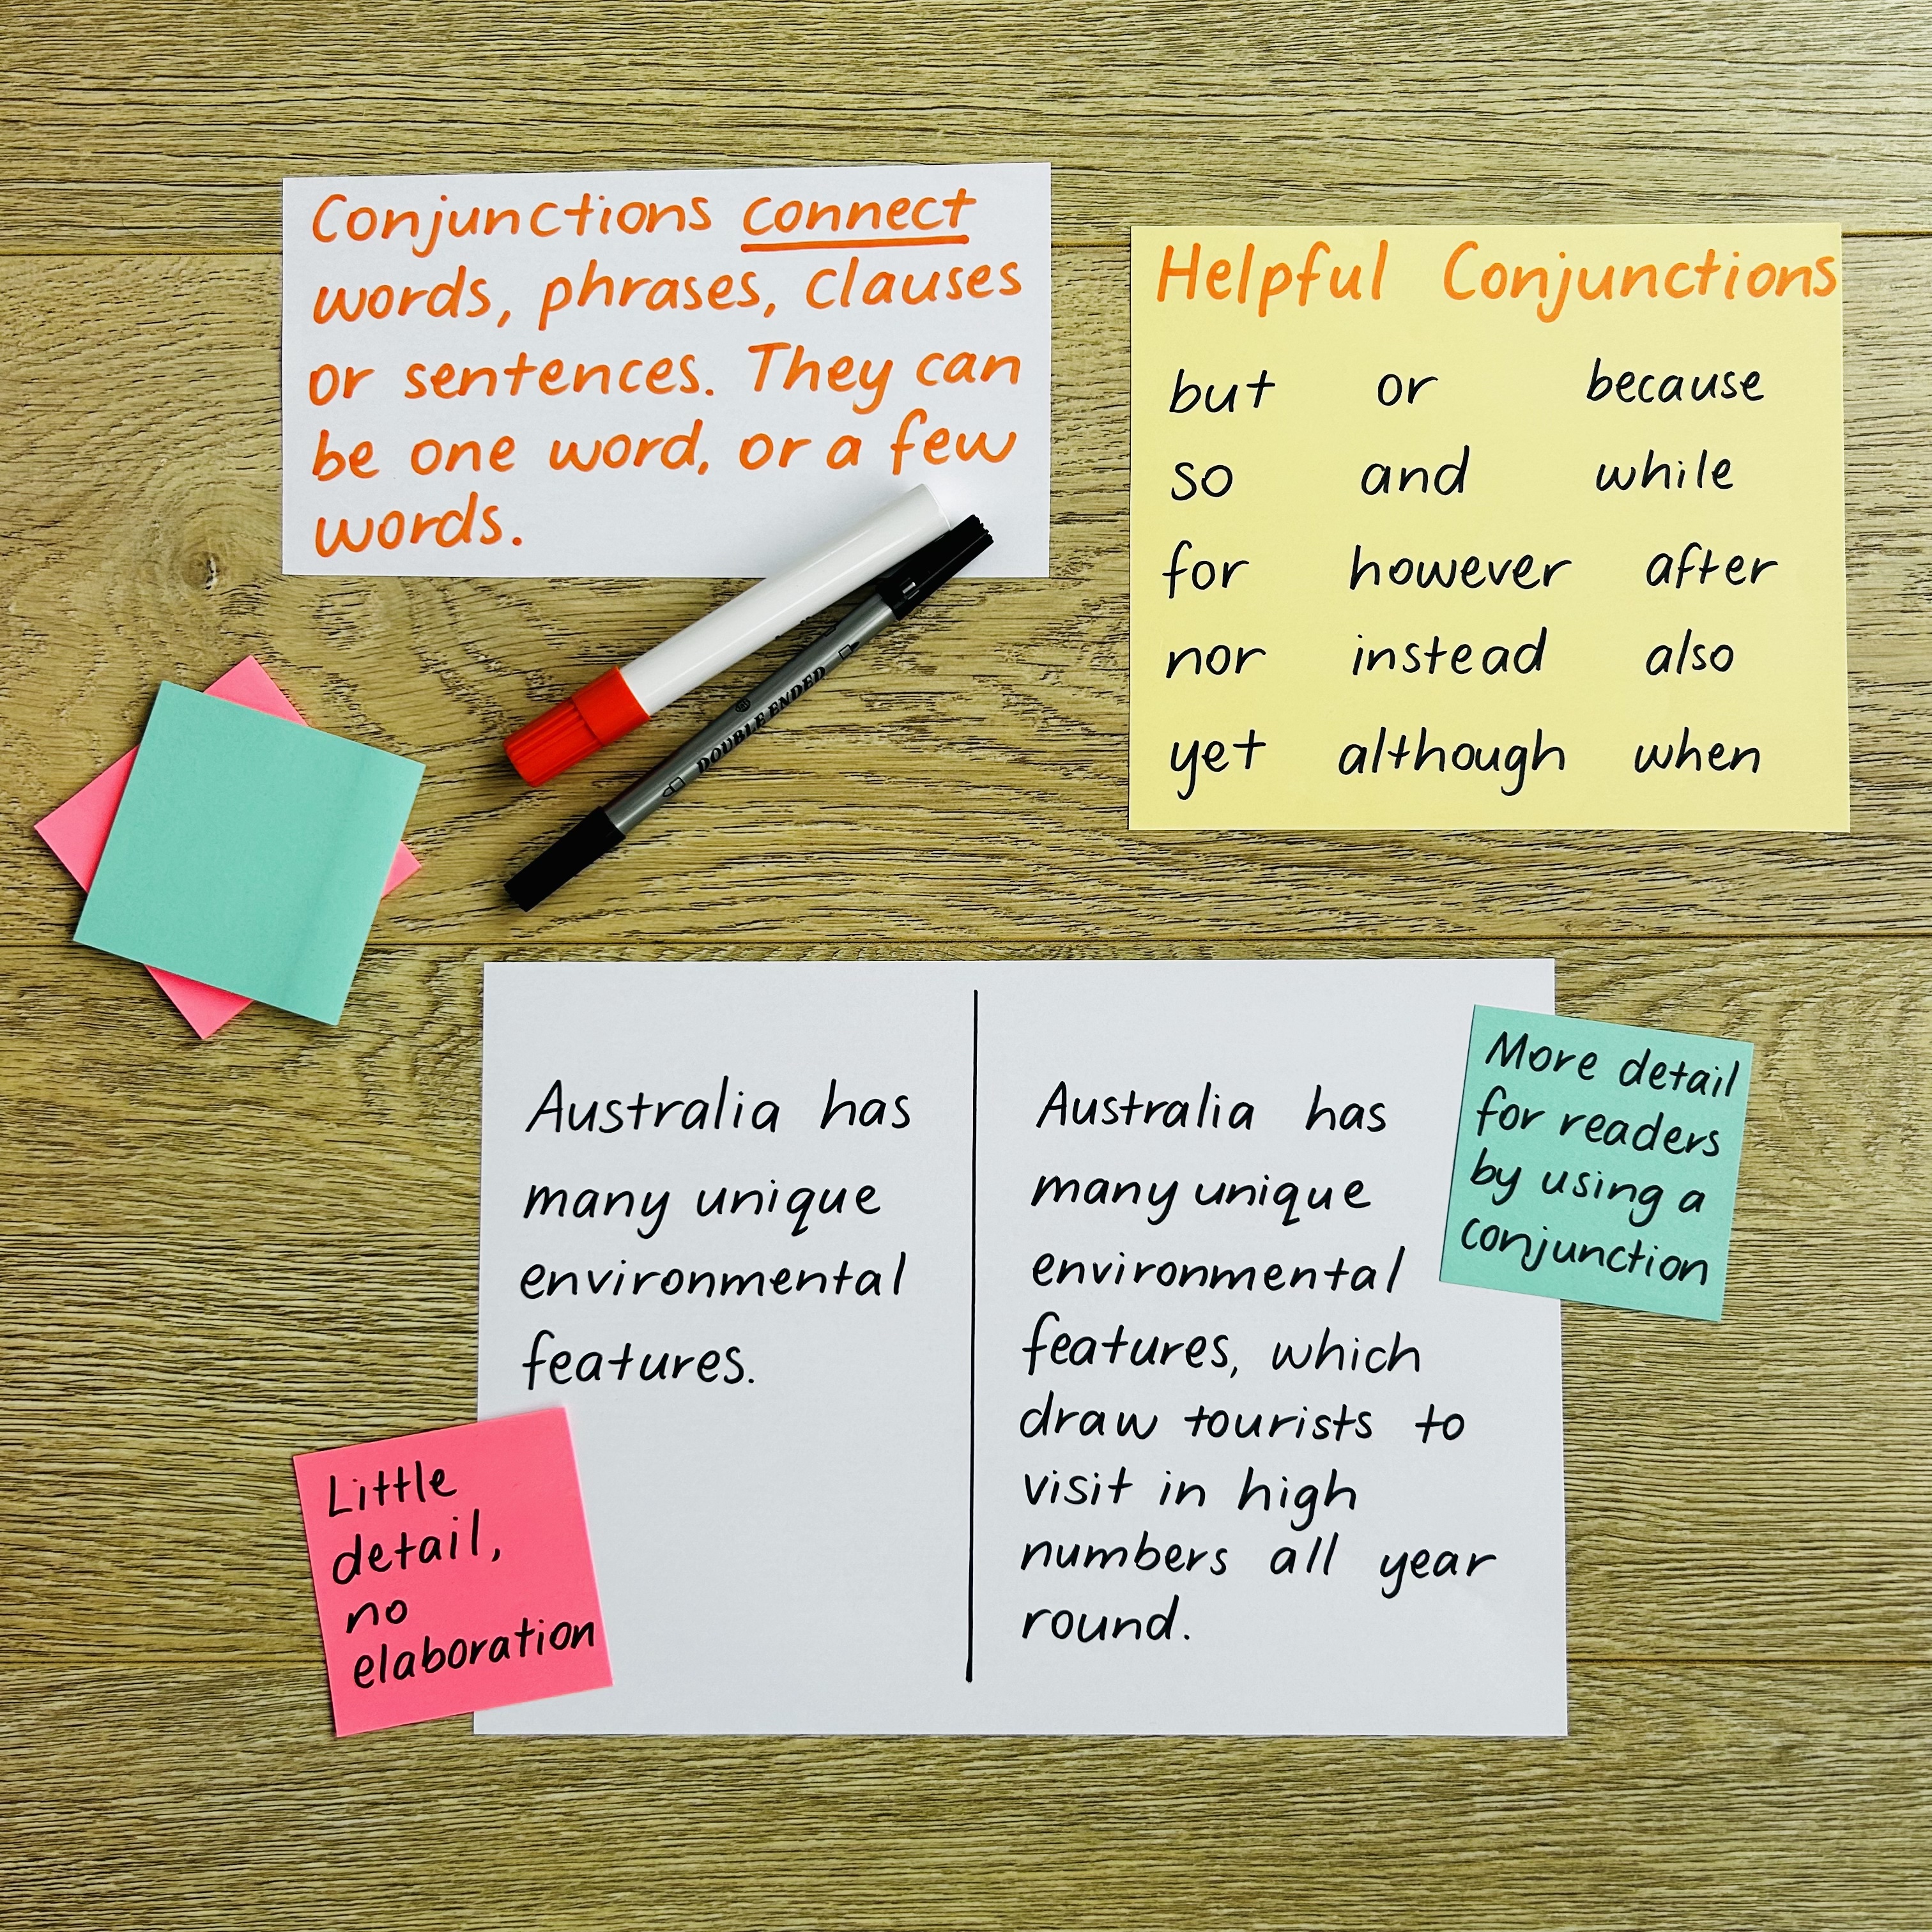 Conjunctions connect
words, phrases, clauses
or sentences. They can
be one word, or a few
words.
Helpful Conjunctions
but or because
so and while
for however after
nor instead also
yet although when
DOUBLE ENDED
Australia has
many unique
environmental
features.
Little
detail,
no
elaboration
Australia has
many unique
environmental
features, which
draw tourists to
visit in high
numbers all year
round.
More detail
for readers
by using a
conjunction